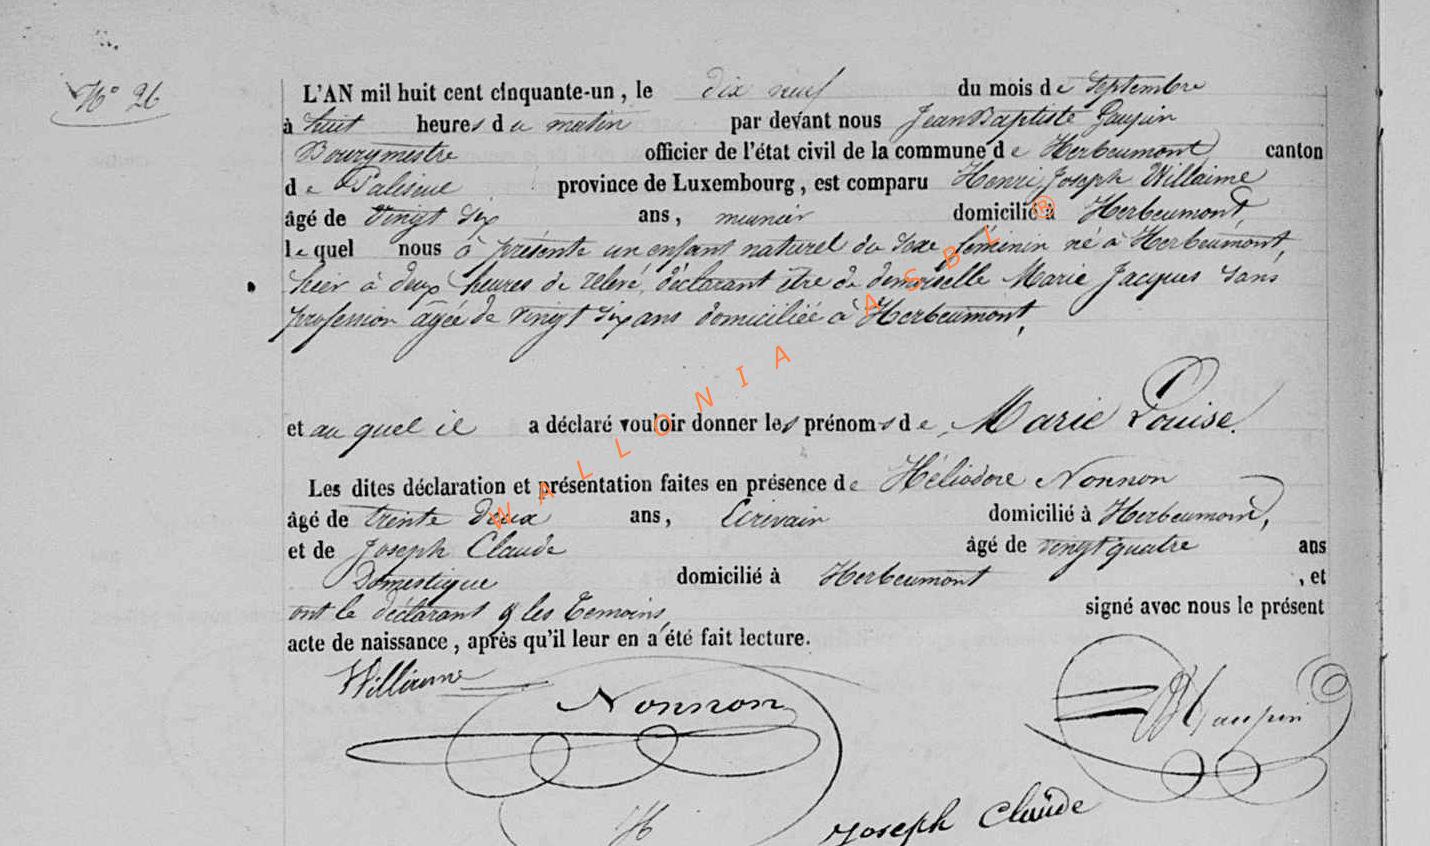 N° 26
L'AN mil huit cent cinquante-un, le dix neuf du mois de Septembre
à huit heures du matin par devant nous Jean Baptiste
Bourgmestre officier de l'état civil de la commune de Herbeumont canton
de Paliseul province de Luxembourg, est comparu Henri Joseph Willaime
âgé de vingt six ans, meunier domicilié à Herbeumont,
lequel nous à présenté un enfant naturel du sexe féminin né à Herbeumont,
hier à deux heures de relevé, déclarant être de demoiselle Marie Jacques sans
profession agée de vingt six ans domiciliée à Herbeumont,
et au quel il a déclaré vouloir donner les prénoms de Marie Louise.
Les dites déclaration et présentation faites en présence de Héliodore Nonnon
âgé de trente deux ans, Ecrivain domicilié à Herbeumont,
et de Joseph Claude âgé de vingt quatre ans
Domestique domicilié à Herbeumont, et
ont le déclarant & les Temoins, signé avec nous le présent
acte de naissance, après qu'il leur en a été fait lecture.
Willaime
Nonnon
Joseph Claude
WALLONIA ASBL ®